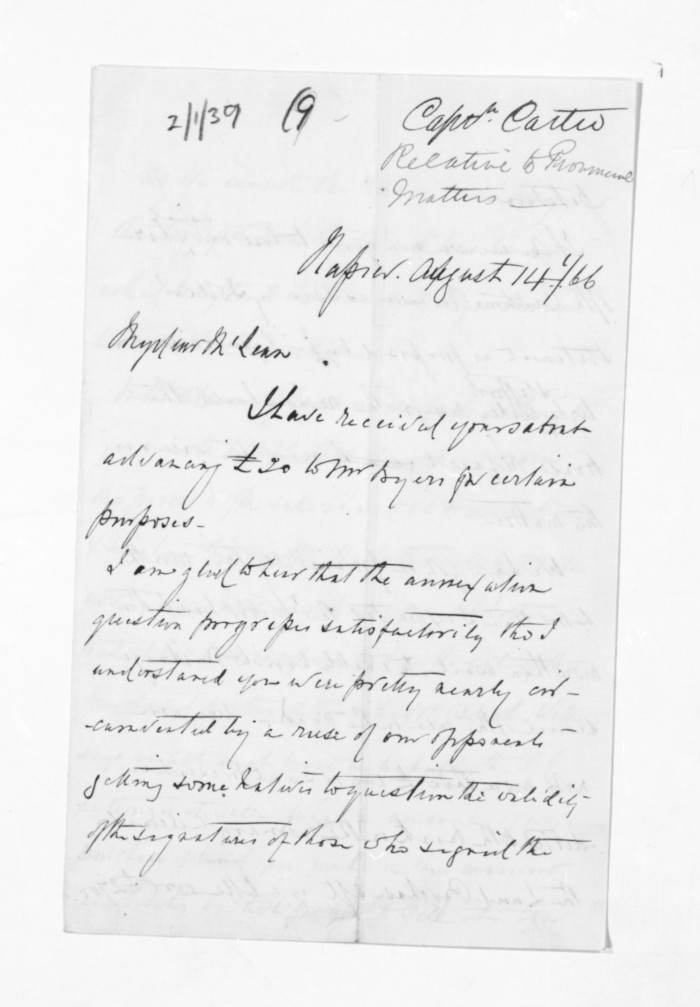 2/1/39 (9
Captn. Carter
Relative to Provincial
Matters
Napier. August 14th/66
My dear McLean
I have received yours about
advancing £20 to Mr Byers for certain
purposes -
I am glad to hear that the annexation
question progresses satisfactorily tho I
understand you were pretty nearly cir-
-cumvented by a ruse of our opponents
getting some Natives to question the validity
of the signatures of those who signed the